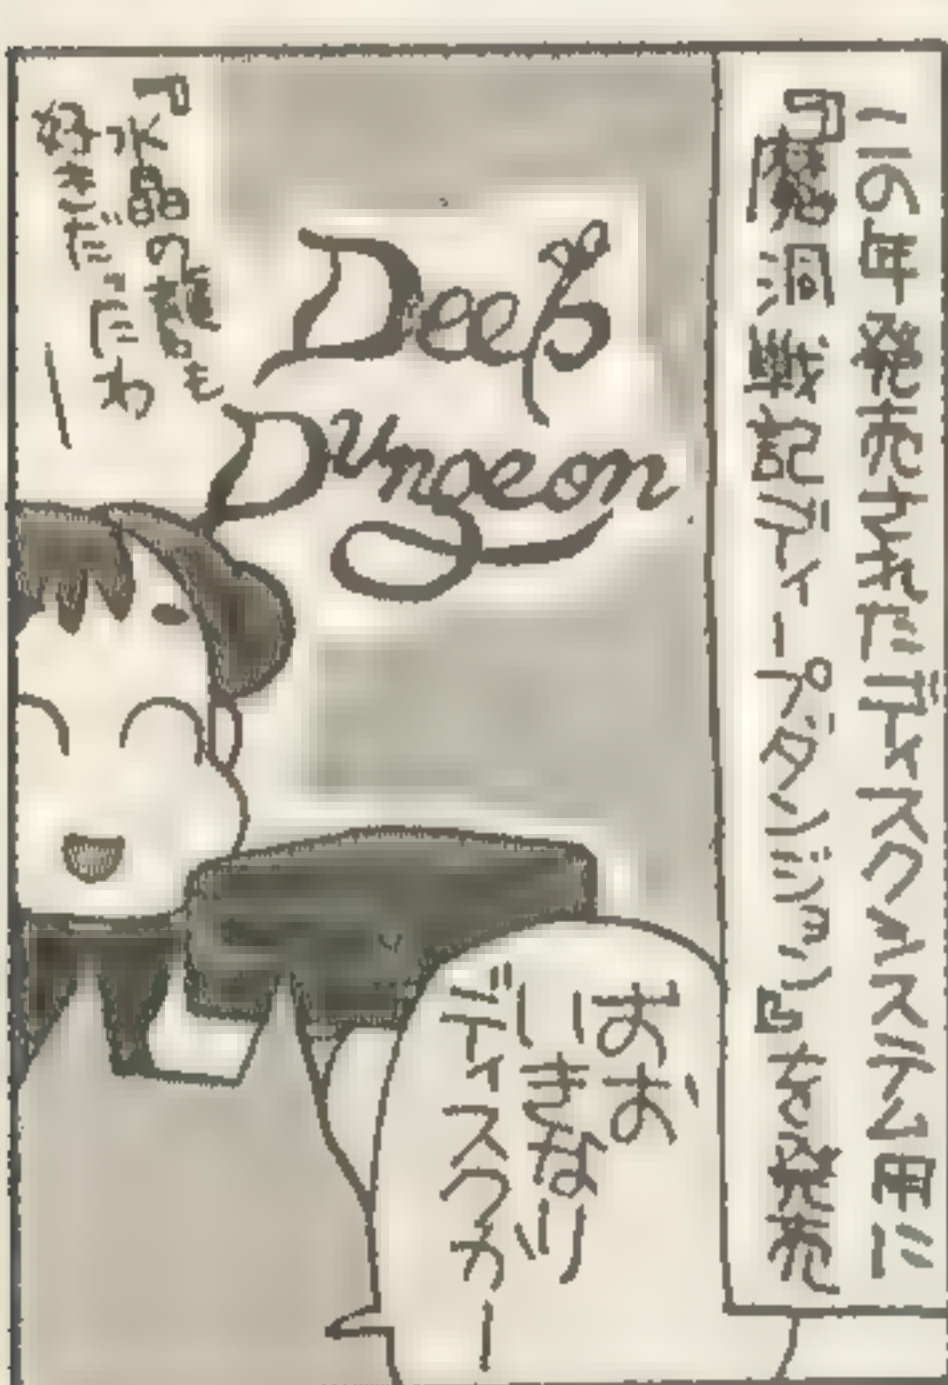 一九八六年発売されたディスクシステム用に
『魔洞戦記ディープダンジョン』を発売
Deep
Dungeon
おお
いきなり
ディスクかー
『水晶の龍』も
好きだったわ